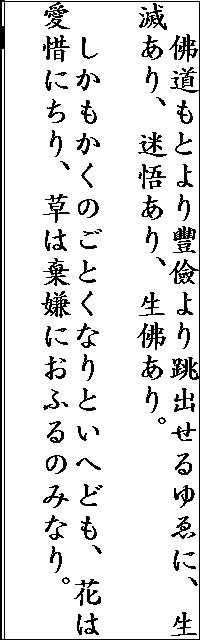 佛道もとより豐儉より跳出せるゆゑに、生
滅あり、迷悟あり、生佛あり。
しかもかくのごとくなりといへども、花は
愛惜にちり、草は棄嫌におふるのみなり。